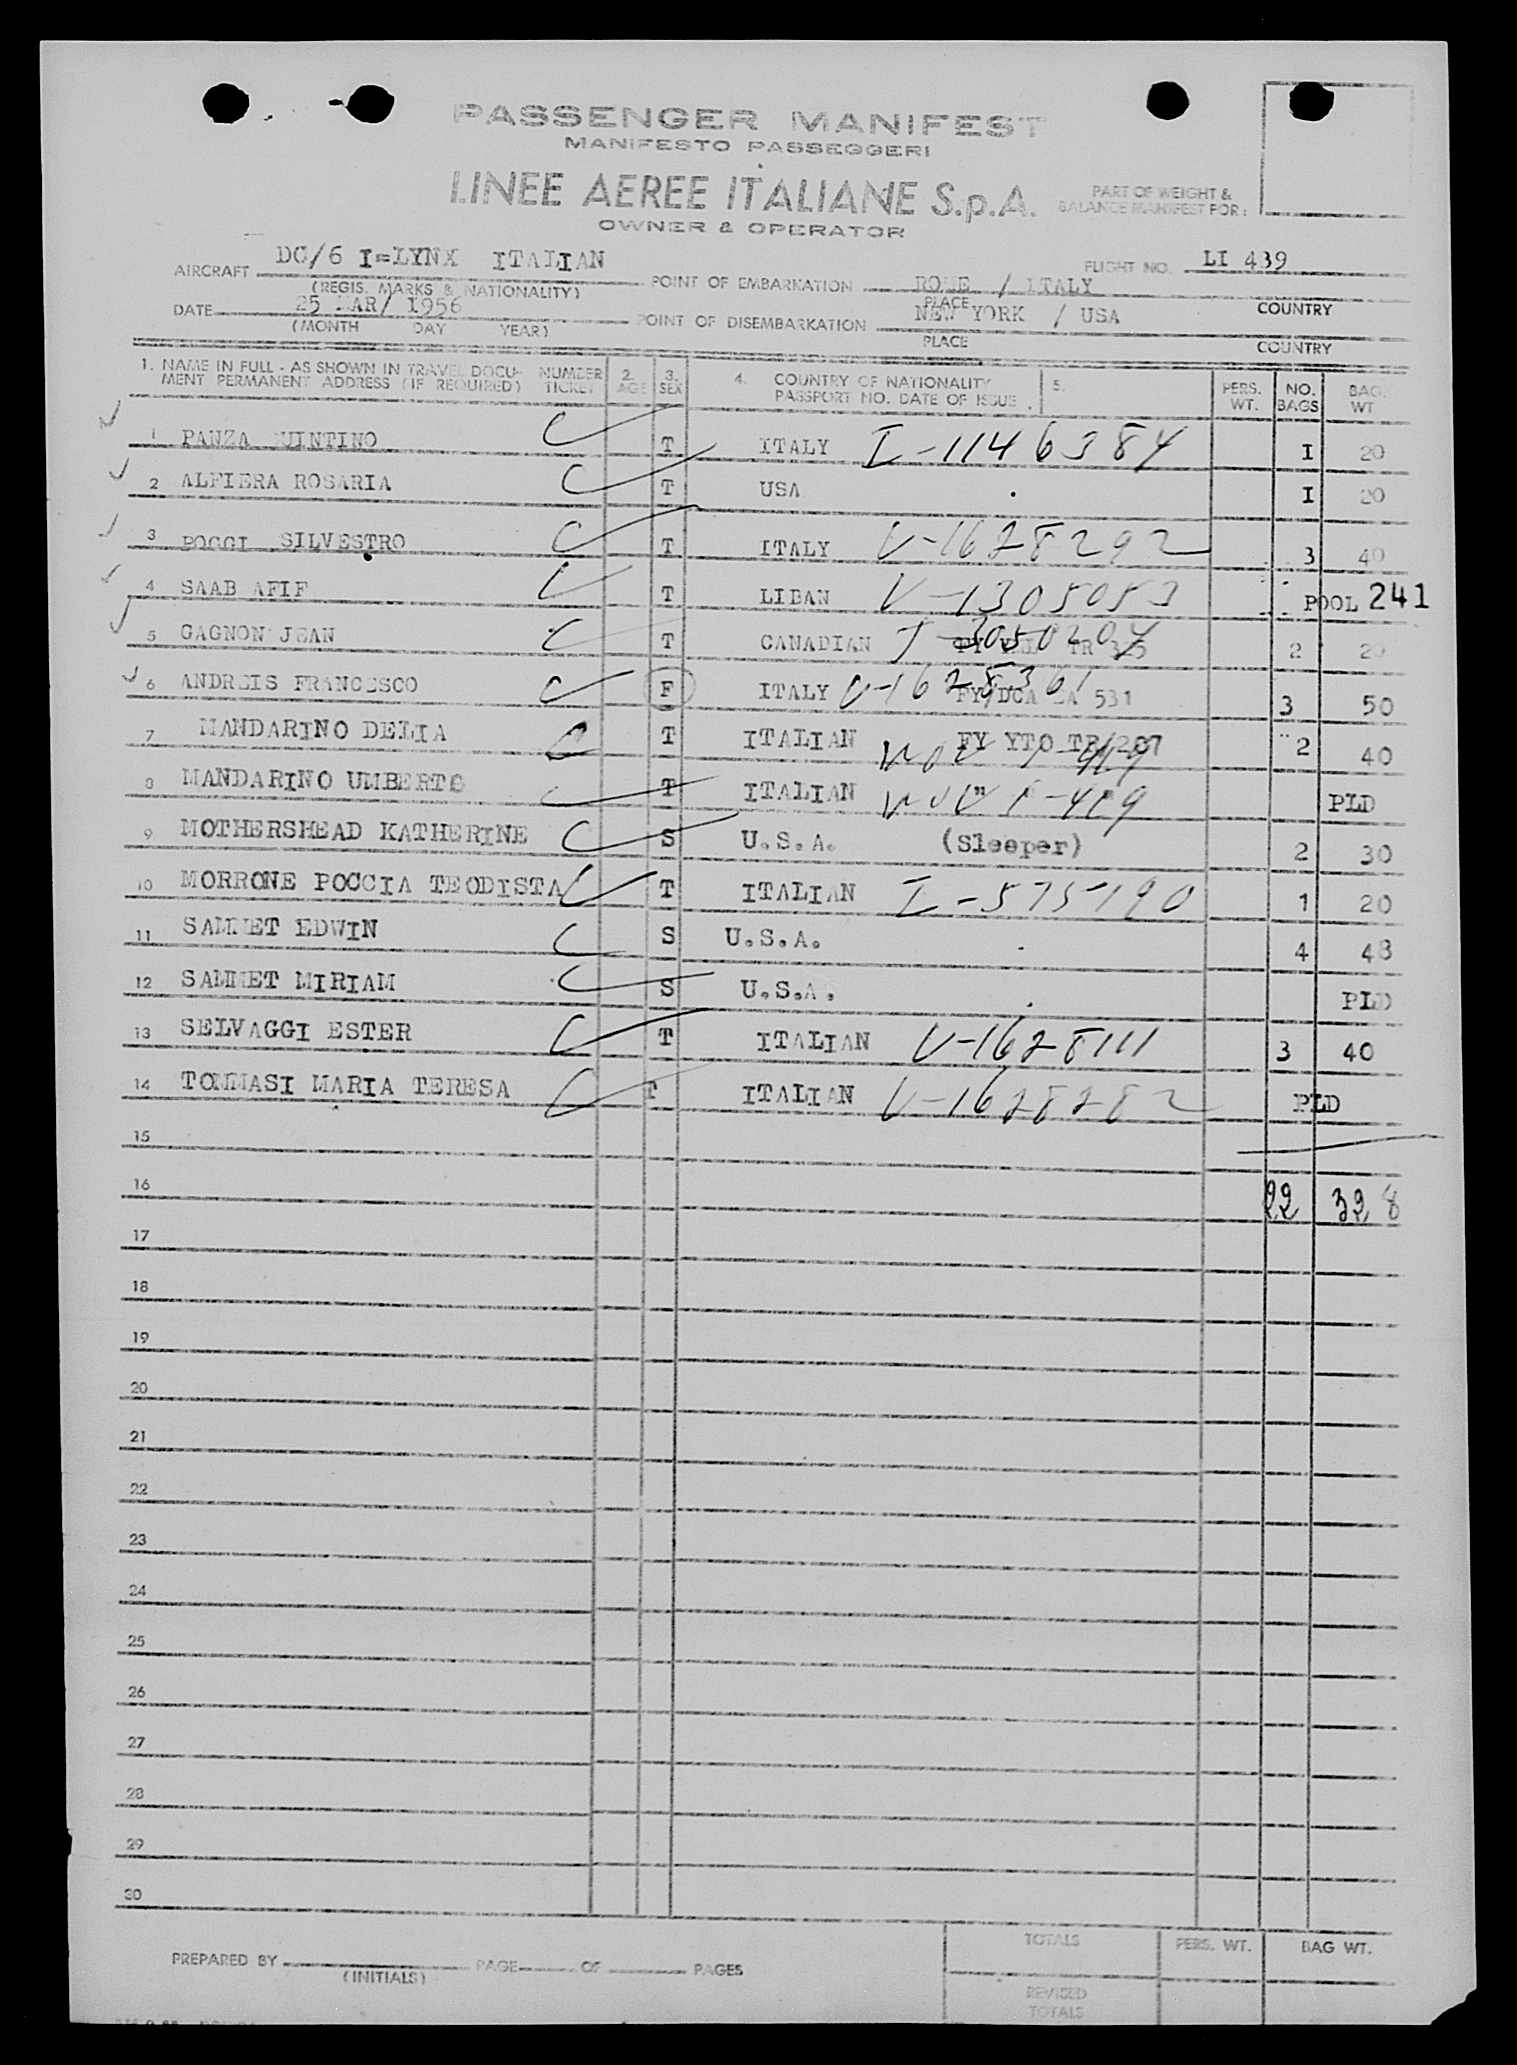 PASSENGER MANIFEST
MANIFESTO PASSEGGERI
LINEE AEREE ITALIANE S.p.A.
OWNER & OPERATOR
PART OF WEIGHT &
BALANCE MANIFEST FOR:
AIRCRAFT DC/6 I=LYNX ITALIAN
(REGIS. MARKS & NATIONALITY)
POINT OF EMBARKATION ROME / ITALY
PLACE COUNTRY
FLIGHT NO. LI 439
DATE 25 MAR/ 1956
(MONTH DAY YEAR)
POINT OF DISEMBARKATION NEW YORK / USA
PLACE COUNTRY
1. NAME IN FULL - AS SHOWN IN TRAVEL DOCU- NUMBER 2. 3. 4. COUNTRY OF NATIONALITY 5. PERS. NO. BAG.
MENT PERMANENT ADDRESS (IF REQUIRED) TICKET AGE SEX PASSPORT NO. DATE OF ISSUE WT. BAGS WT
1 PANZA UINTINO T ITALY I-1146384 I 20
2 ALFIERA ROSARIA T USA I 20
3 POGGI SILVESTRO T ITALY V-1628292 3 40
4 SAAB AFIF T LIBAN V-1305053 POOL 241
5 GAGNON JEAN T CANADIAN TR 2 20
6 ANDREIS FRANCESCO F ITALY V-1628361 FY/DCA 531 3 50
7 MANDARINO DELIA T ITALIAN FY YTO TR/207 2 40
8 MANDARINO UMBERTO T ITALIAN " PLD
9 MOTHERSHEAD KATHERINE S U.S.A. (Sleeper) 2 30
10 MORRONE POCCIA TEODISTA T ITALIAN I-575190 1 20
11 SAMMET EDWIN S U.S.A. 4 48
12 SAMMET MIRIAM S U.S.A. PLD
13 SELVAGGI ESTER T ITALIAN V-1628111 3 40
14 TOMMASI MARIA TERESA T ITALIAN V-1628282 PLD
15
16 22 328
17
18
19
20
21
22
23
24
25
26
27
28
29
30
PREPARED BY PAGE OF PAGES
(INITIALS)
TOTALS PERS. WT. BAG WT.
REVISED
TOTALS